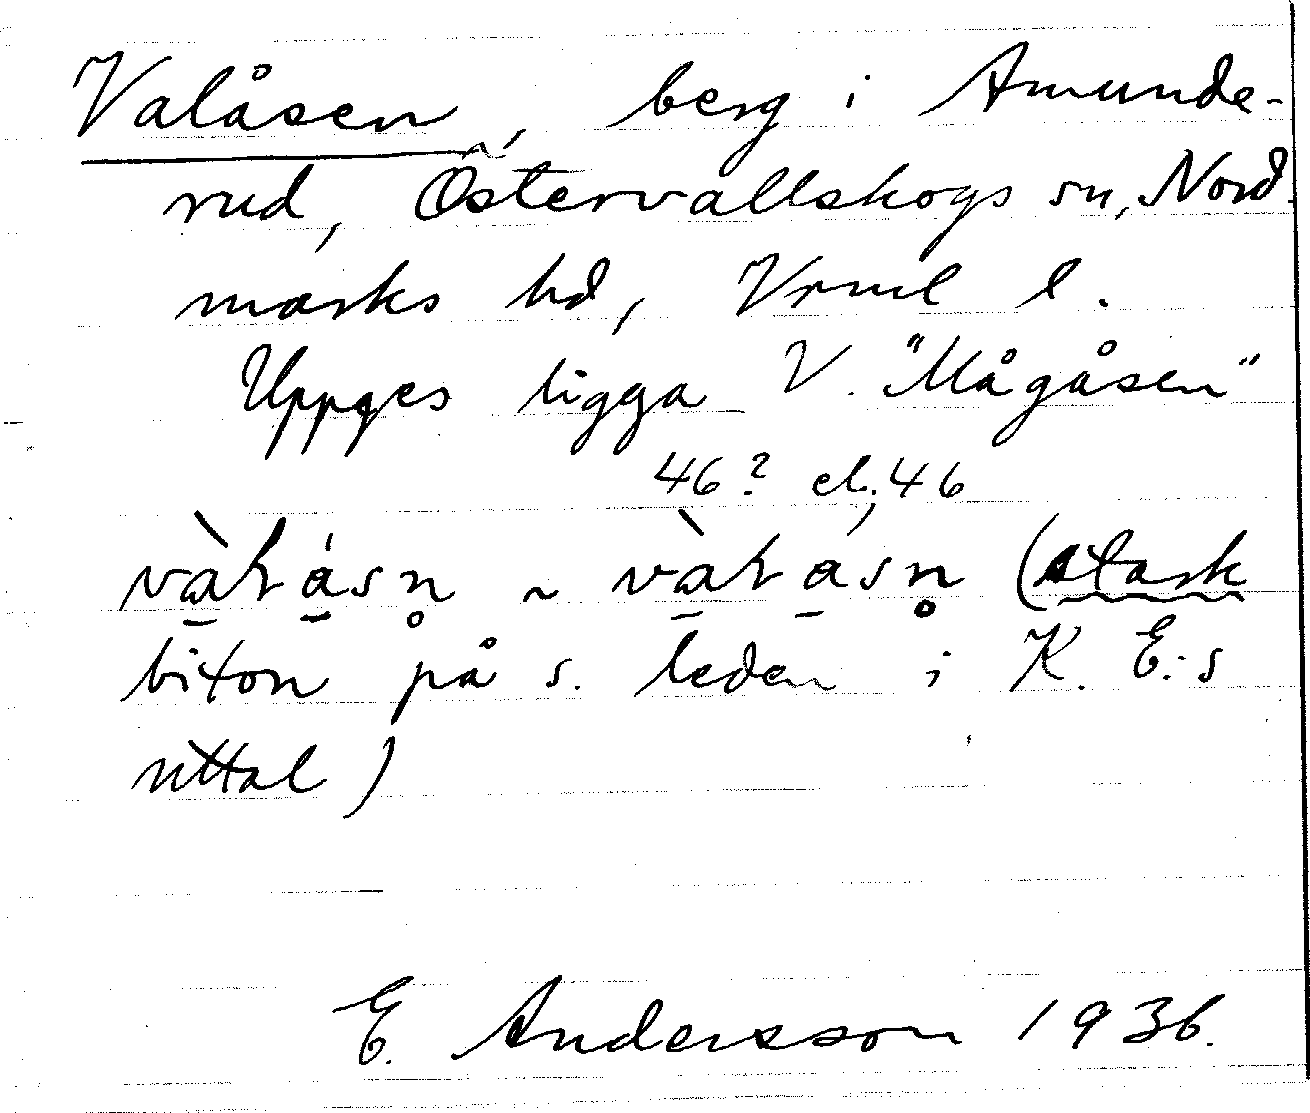 Valåsen, berg i Amunde-
rud, Östervallskogs sn, Nord-
marks hd, Vrml l.
Uppges ligga V. "Mågåsen"
46? el. 46
vàḷåsn̥ ~ vàḷåsn̥ (stark
biton på s. leden i K. E:s
uttal)
E. Andersson 1936.